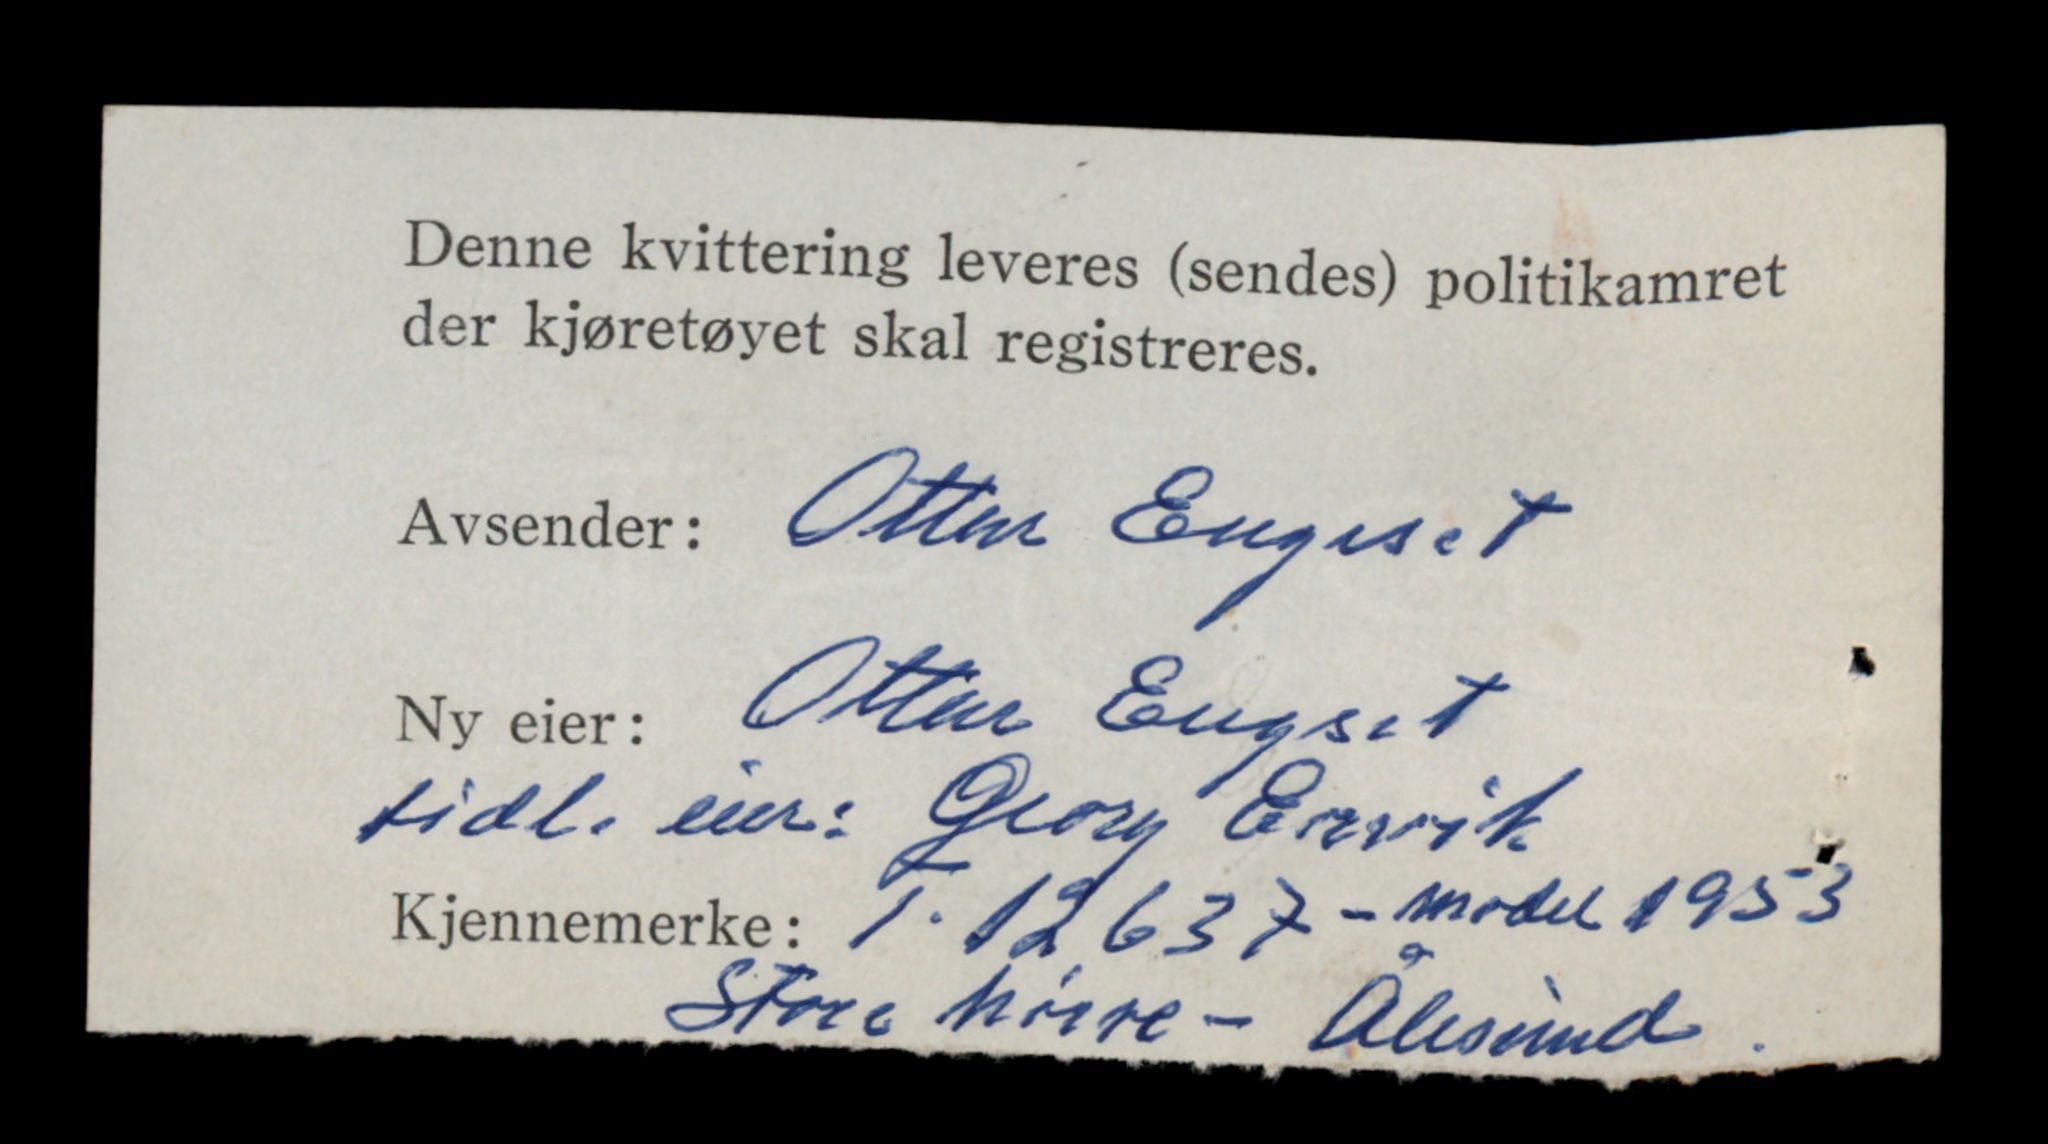 Denne kvittering leveres (sendes) politikamret
der kjøretøyet skal registreres.
Avsender: Ottar Engeset
Ny eier: Ottar Engset
tidl. eier: Georg
Kjennemerke: T. 12637 - model 1953
Ålesund.